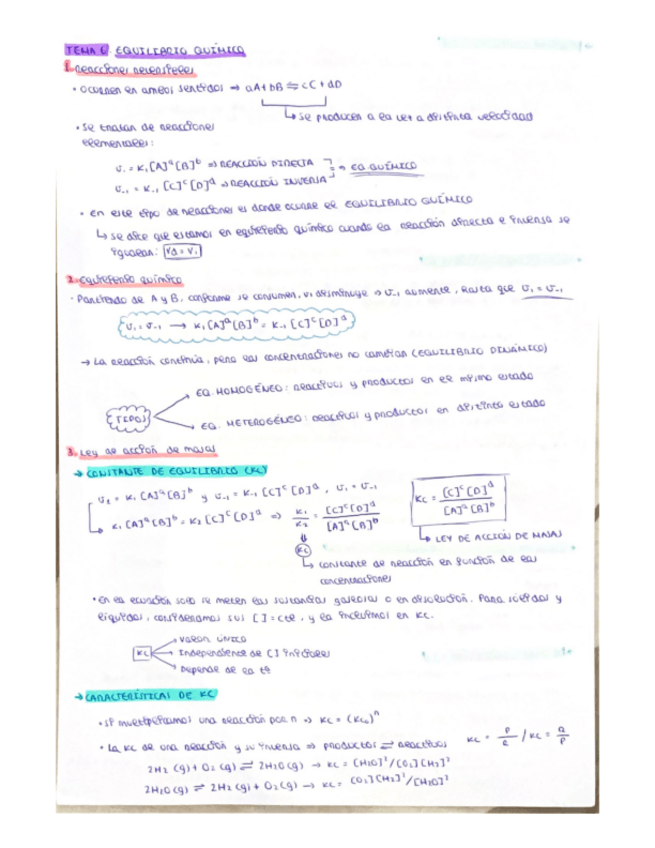 TEMA 6. EQUILIBRIO QUÍMICO
1. Reacciones reversibles
· Ocurren en ambos sentidos ⇒ aA + bB ⇌ cC + dD
↳ Se producen a la vez a distinta velocidad
· Se tratan de reacciones
elementales:
v₁ = K₁ [A]ᵃ [B]ᵇ ⇒ REACCIÓN DIRECTA
v₋₁ = K₋₁ [C]ᶜ [D]ᵈ ⇒ REACCIÓN INVERSA
⇒ EQ. QUÍMICO
· En este tipo de reacciones es donde ocurre el EQUILIBRIO QUÍMICO
↳ Se dice que estamos en equilibrio químico cuando la reacción directa e inversa se
igualan: Vd = Vi
2. Equilibrio químico
· Partiendo de A y B, conforme se consumen, v₁ disminuye → v₋₁ aumente, hasta que v₁ = v₋₁
v₁ = v₋₁ → K₁ [A]ᵃ [B]ᵇ = K₋₁ [C]ᶜ [D]ᵈ
→ La reacción continúa, pero las concentraciones no cambian (EQUILIBRIO DINÁMICO)
TIPOS
EQ. HOMOGÉNEO: reactivos y productos en el mismo estado
EQ. HETEROGÉNEO: reactivos y productos en distinto estado
3. Ley de acción de masas
→ CONSTANTE DE EQUILIBRIO (Kc)
v₁ = K₁ [A]ᵃ [B]ᵇ y v₋₁ = K₋₁ [C]ᶜ [D]ᵈ, v₁ = v₋₁
↳ K₁ [A]ᵃ [B]ᵇ = K₂ [C]ᶜ [D]ᵈ ⇒ K₁/K₂ = [C]ᶜ [D]ᵈ / [A]ᵃ [B]ᵇ
Kc = [C]ᶜ [D]ᵈ / [A]ᵃ [B]ᵇ
↳ LEY DE ACCIÓN DE MASAS
Kc
↳ constante de reacción en función de las
concentraciones
· En la ecuación solo se meten las sustancias gaseosas o en disolución. Para sólidos y
líquidos, consideramos sus [ ] = cte, y la incluimos en Kc.
Kc
Valor único
Independiente de [ ] iniciales
Depende de la tª
→ CARACTERÍSTICAS DE KC
· Si multiplicamos una reacción por n → Kc = (Kc₀)ⁿ
· La Kc de una reacción y su inversa ⇒ productos ⇌ reactivos
Kc = P/R / Kc = R/P
2H₂ (g) + O₂ (g) ⇌ 2H₂O (g) → Kc = [H₂O]²/[O₂][H₂]²
2H₂O (g) ⇌ 2H₂ (g) + O₂ (g) → Kc = [O₂][H₂]²/[H₂O]²